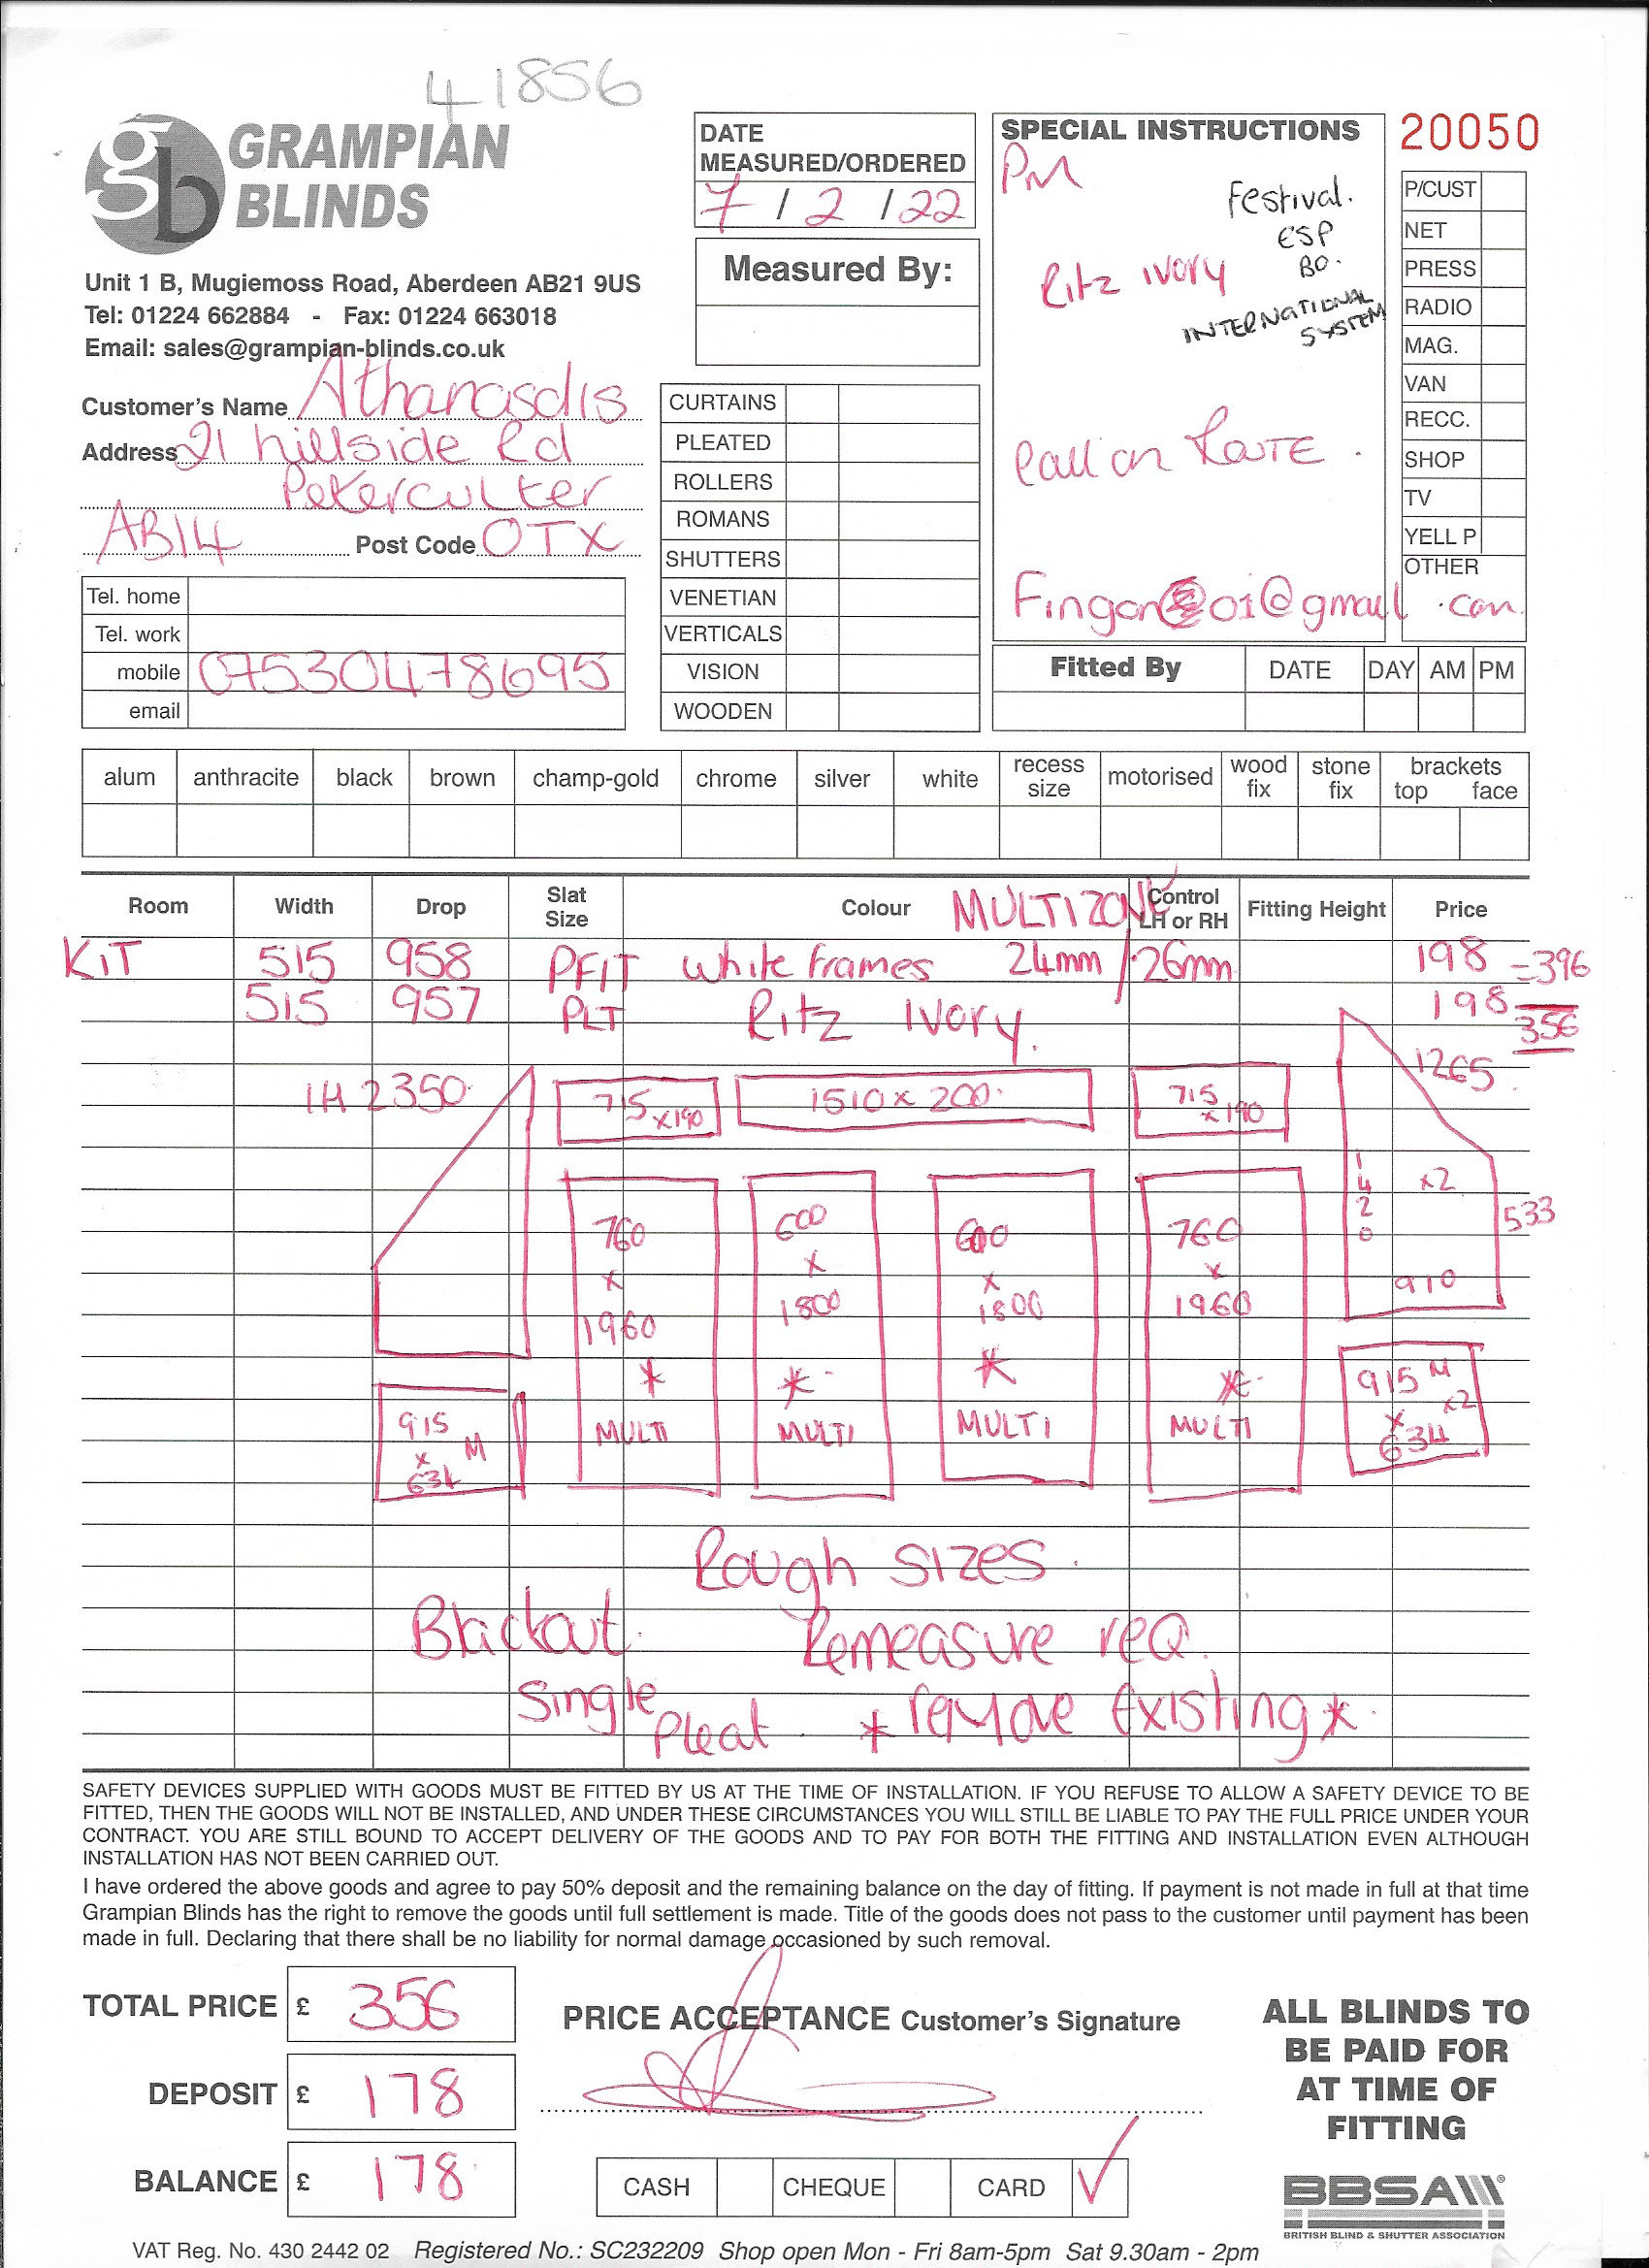 41856
GRAMPIAN
BLINDS
Unit 1 B, Mugiemoss Road, Aberdeen AB21 9US
Tel: 01224 662884 - Fax: 01224 663018
Email: sales@grampian-blinds.co.uk
DATE
MEASURED/ORDERED
7 / 2 / 22
Measured By:
SPECIAL INSTRUCTIONS
PM
Festival.
ESP
BO.
Ritz Ivory
INTERNATIONAL
SYSTEM
Call on ROUTE.
20050
P/CUST
NET
PRESS
RADIO
MAG.
VAN
RECC.
SHOP
TV
YELL P
OTHER
Customer's Name Athanasdis
Address 21 hillside Rd
Peterculter
AB14 Post Code OTX
Tel. home
Tel. work
mobile 07530478695
email
CURTAINS
PLEATED
ROLLERS
ROMANS
SHUTTERS
VENETIAN
VERTICALS
VISION
WOODEN
Fitted By DATE DAY AM PM
alum anthracite black brown champ-gold chrome silver white recess size motorised wood fix stone fix brackets top face
Room Width Drop Slat Size Colour MULTIZONE Control LH or RH Fitting Height Price
KIT 515 958 PFIT White Frames 24mm / 26mm 198 =396
515 957 PLT Ritz Ivory. 198 356
1H 2350 715 x190 1510 x 200 715 x 190 1265
1420 x2 533
910
760 x 1960 * MULTI
600 x 1800 * MULTI
600 x 1800 * MULTI
760 x 1960 * MULTI
915 x 634 M
915 x 634 M x2
Rough sizes.
Blackout. Remeasure req.
Single Pleat * remove Existing *
SAFETY DEVICES SUPPLIED WITH GOODS MUST BE FITTED BY US AT THE TIME OF INSTALLATION. IF YOU REFUSE TO ALLOW A SAFETY DEVICE TO BE
FITTED, THEN THE GOODS WILL NOT BE INSTALLED, AND UNDER THESE CIRCUMSTANCES YOU WILL STILL BE LIABLE TO PAY THE FULL PRICE UNDER YOUR
CONTRACT. YOU ARE STILL BOUND TO ACCEPT DELIVERY OF THE GOODS AND TO PAY FOR BOTH THE FITTING AND INSTALLATION EVEN ALTHOUGH
INSTALLATION HAS NOT BEEN CARRIED OUT.
I have ordered the above goods and agree to pay 50% deposit and the remaining balance on the day of fitting. If payment is not made in full at that time
Grampian Blinds has the right to remove the goods until full settlement is made. Title of the goods does not pass to the customer until payment has been
made in full. Declaring that there shall be no liability for normal damage occasioned by such removal.
TOTAL PRICE £ 356
DEPOSIT £ 178
BALANCE £ 178
PRICE ACCEPTANCE Customer's Signature
CASH CHEQUE CARD ✓
ALL BLINDS TO
BE PAID FOR
AT TIME OF
FITTING
BBSA
BRITISH BLIND & SHUTTER ASSOCIATION
VAT Reg. No. 430 2442 02 Registered No.: SC232209 Shop open Mon - Fri 8am-5pm Sat 9.30am - 2pm